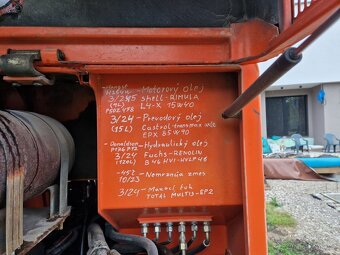 - Motorový olej
3/24 Shell-RIMULA
(9L) L4-X 15W40
3/24 - Prevodový olej
(15L) Castrol-transmax
EPX 85W90
Donaldson - Hydraulický olej
3/24 Fuchs-RENOLIN
(120L) B46 HVI-HVLP46
-45°C - Nemrznúca zmes
10/23
3/24 - Mazací tuk
TOTAL MULTIS-EP2